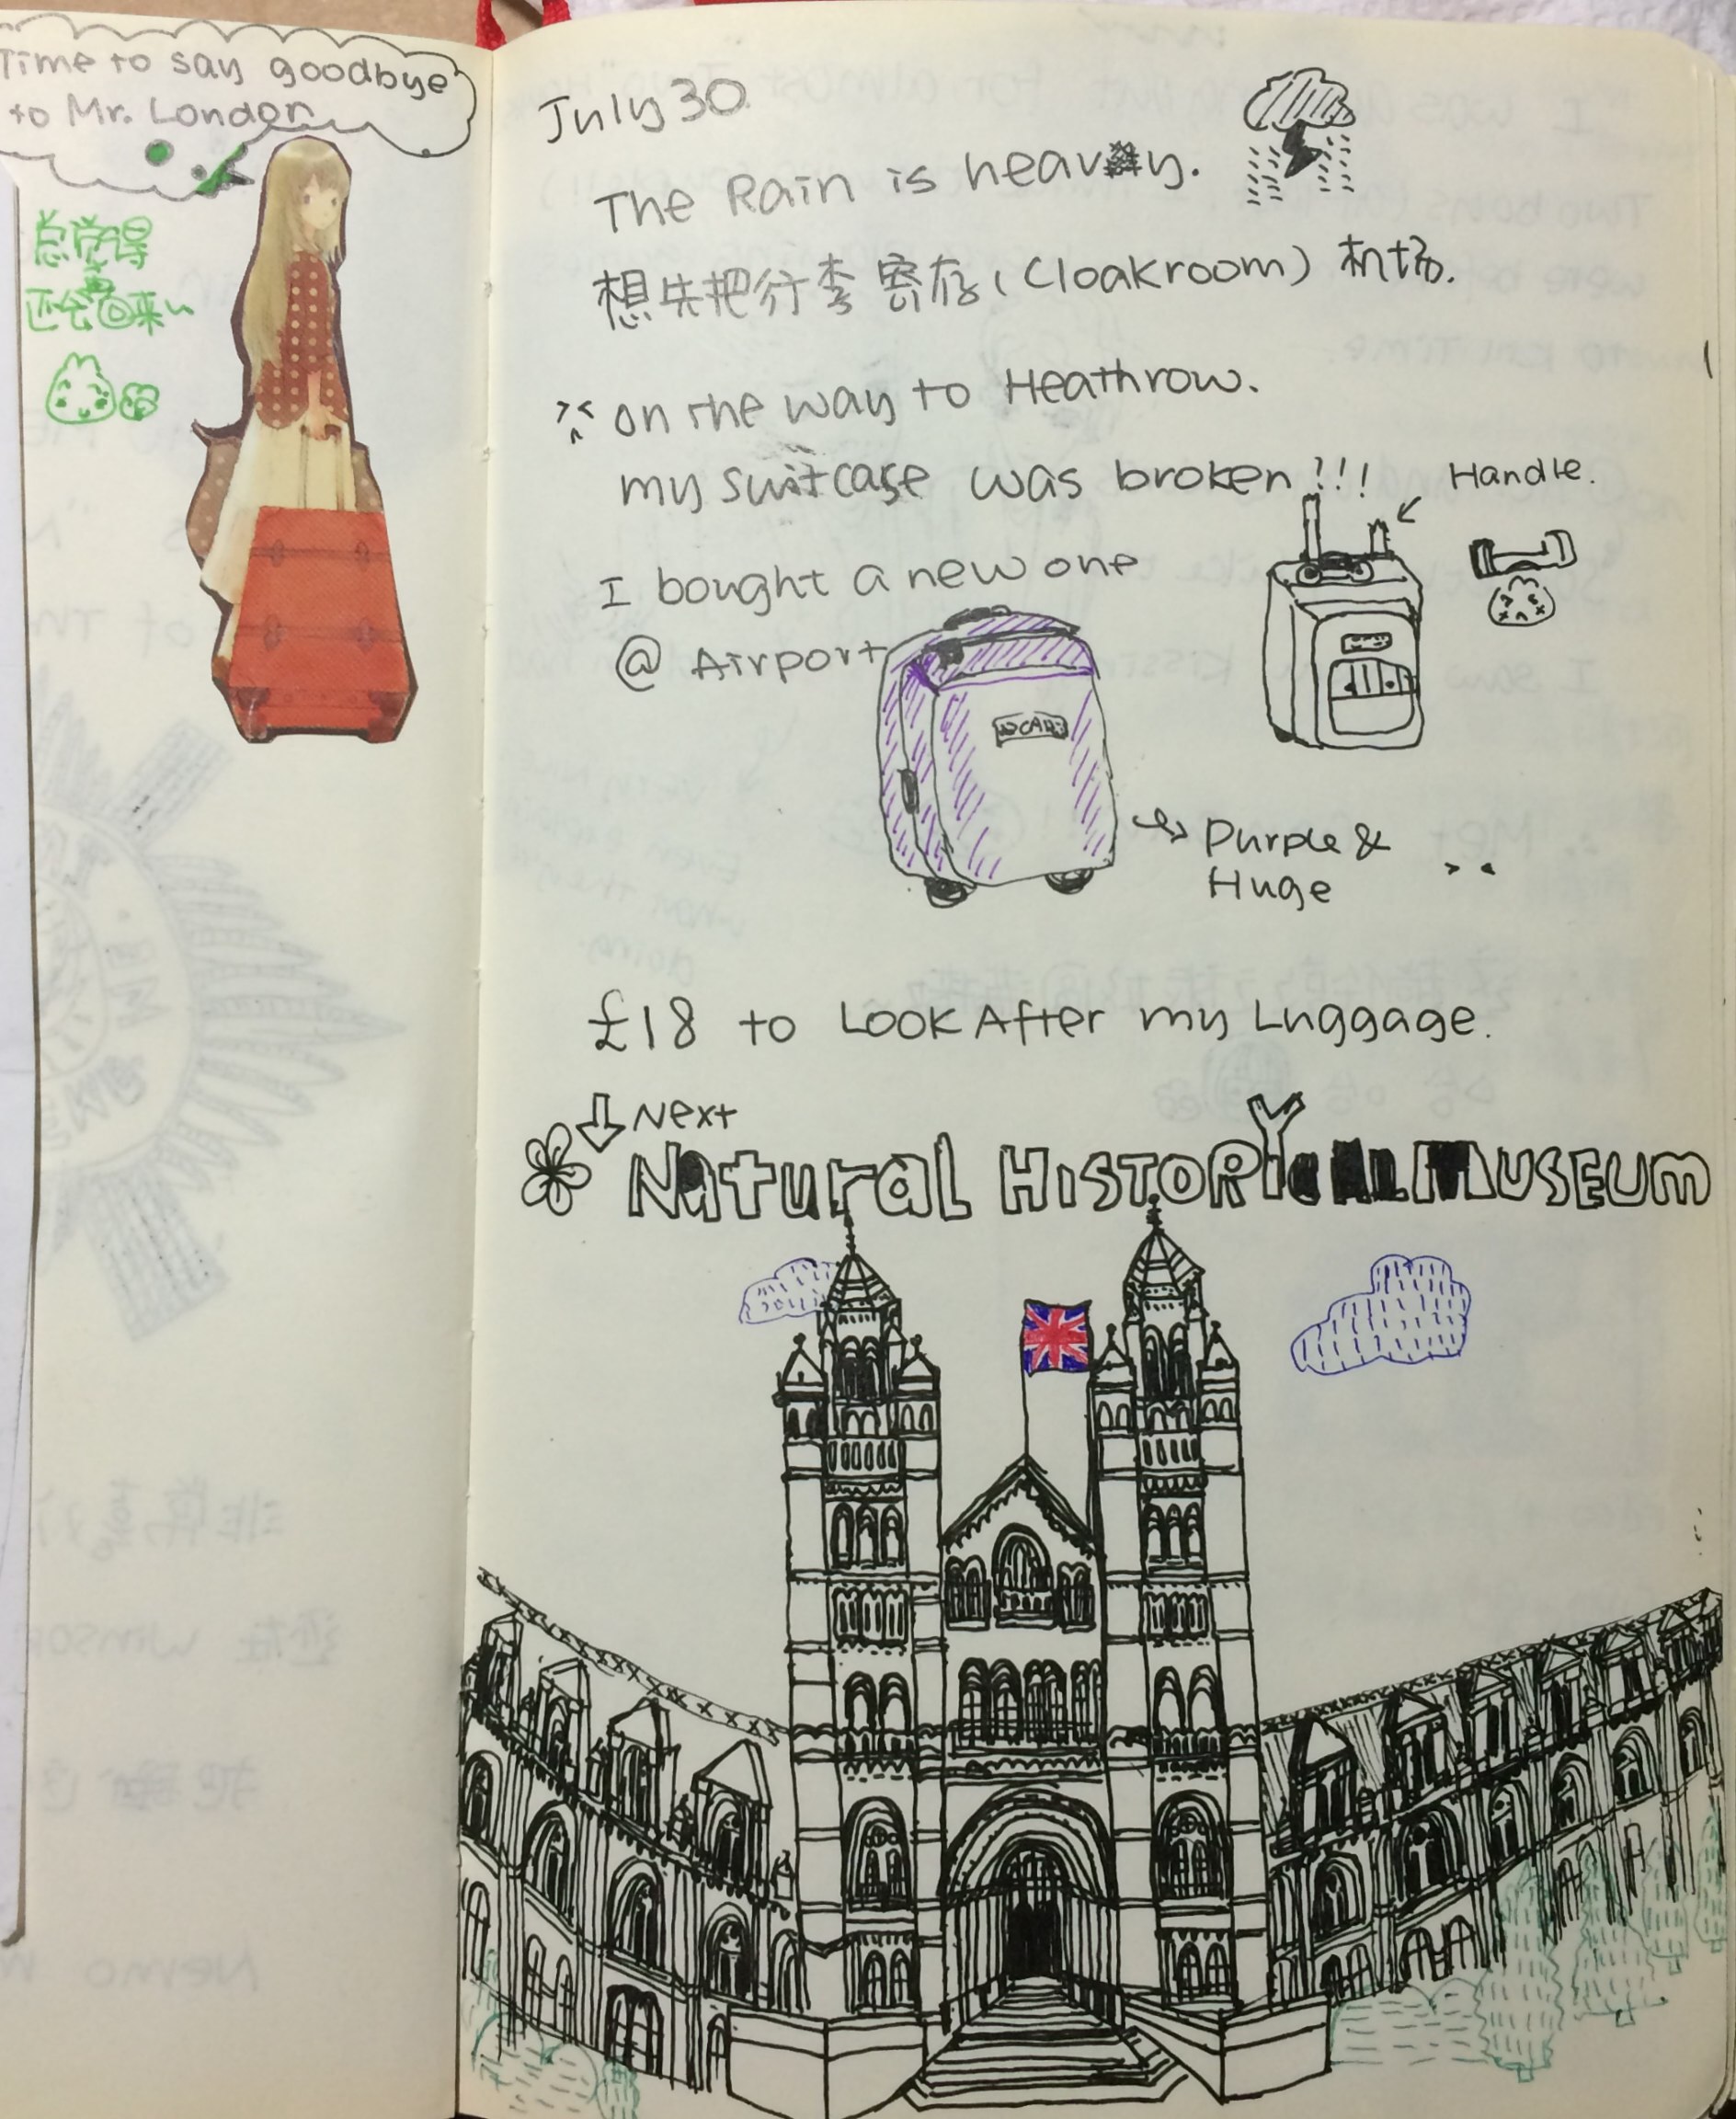 Time to say goodbye
to Mr. London
总觉得
还会再回来~
July 30.
The Rain is heavy.
想先把行李寄存 (Cloakroom) 机场.
on the way to Heathrow.
my suitcase was broken!!!
Handle.
I bought a new one
@ Airport
Purple &
Huge
£18 to Look After my Luggage.
Next
Natural HISTORY MUSEUM